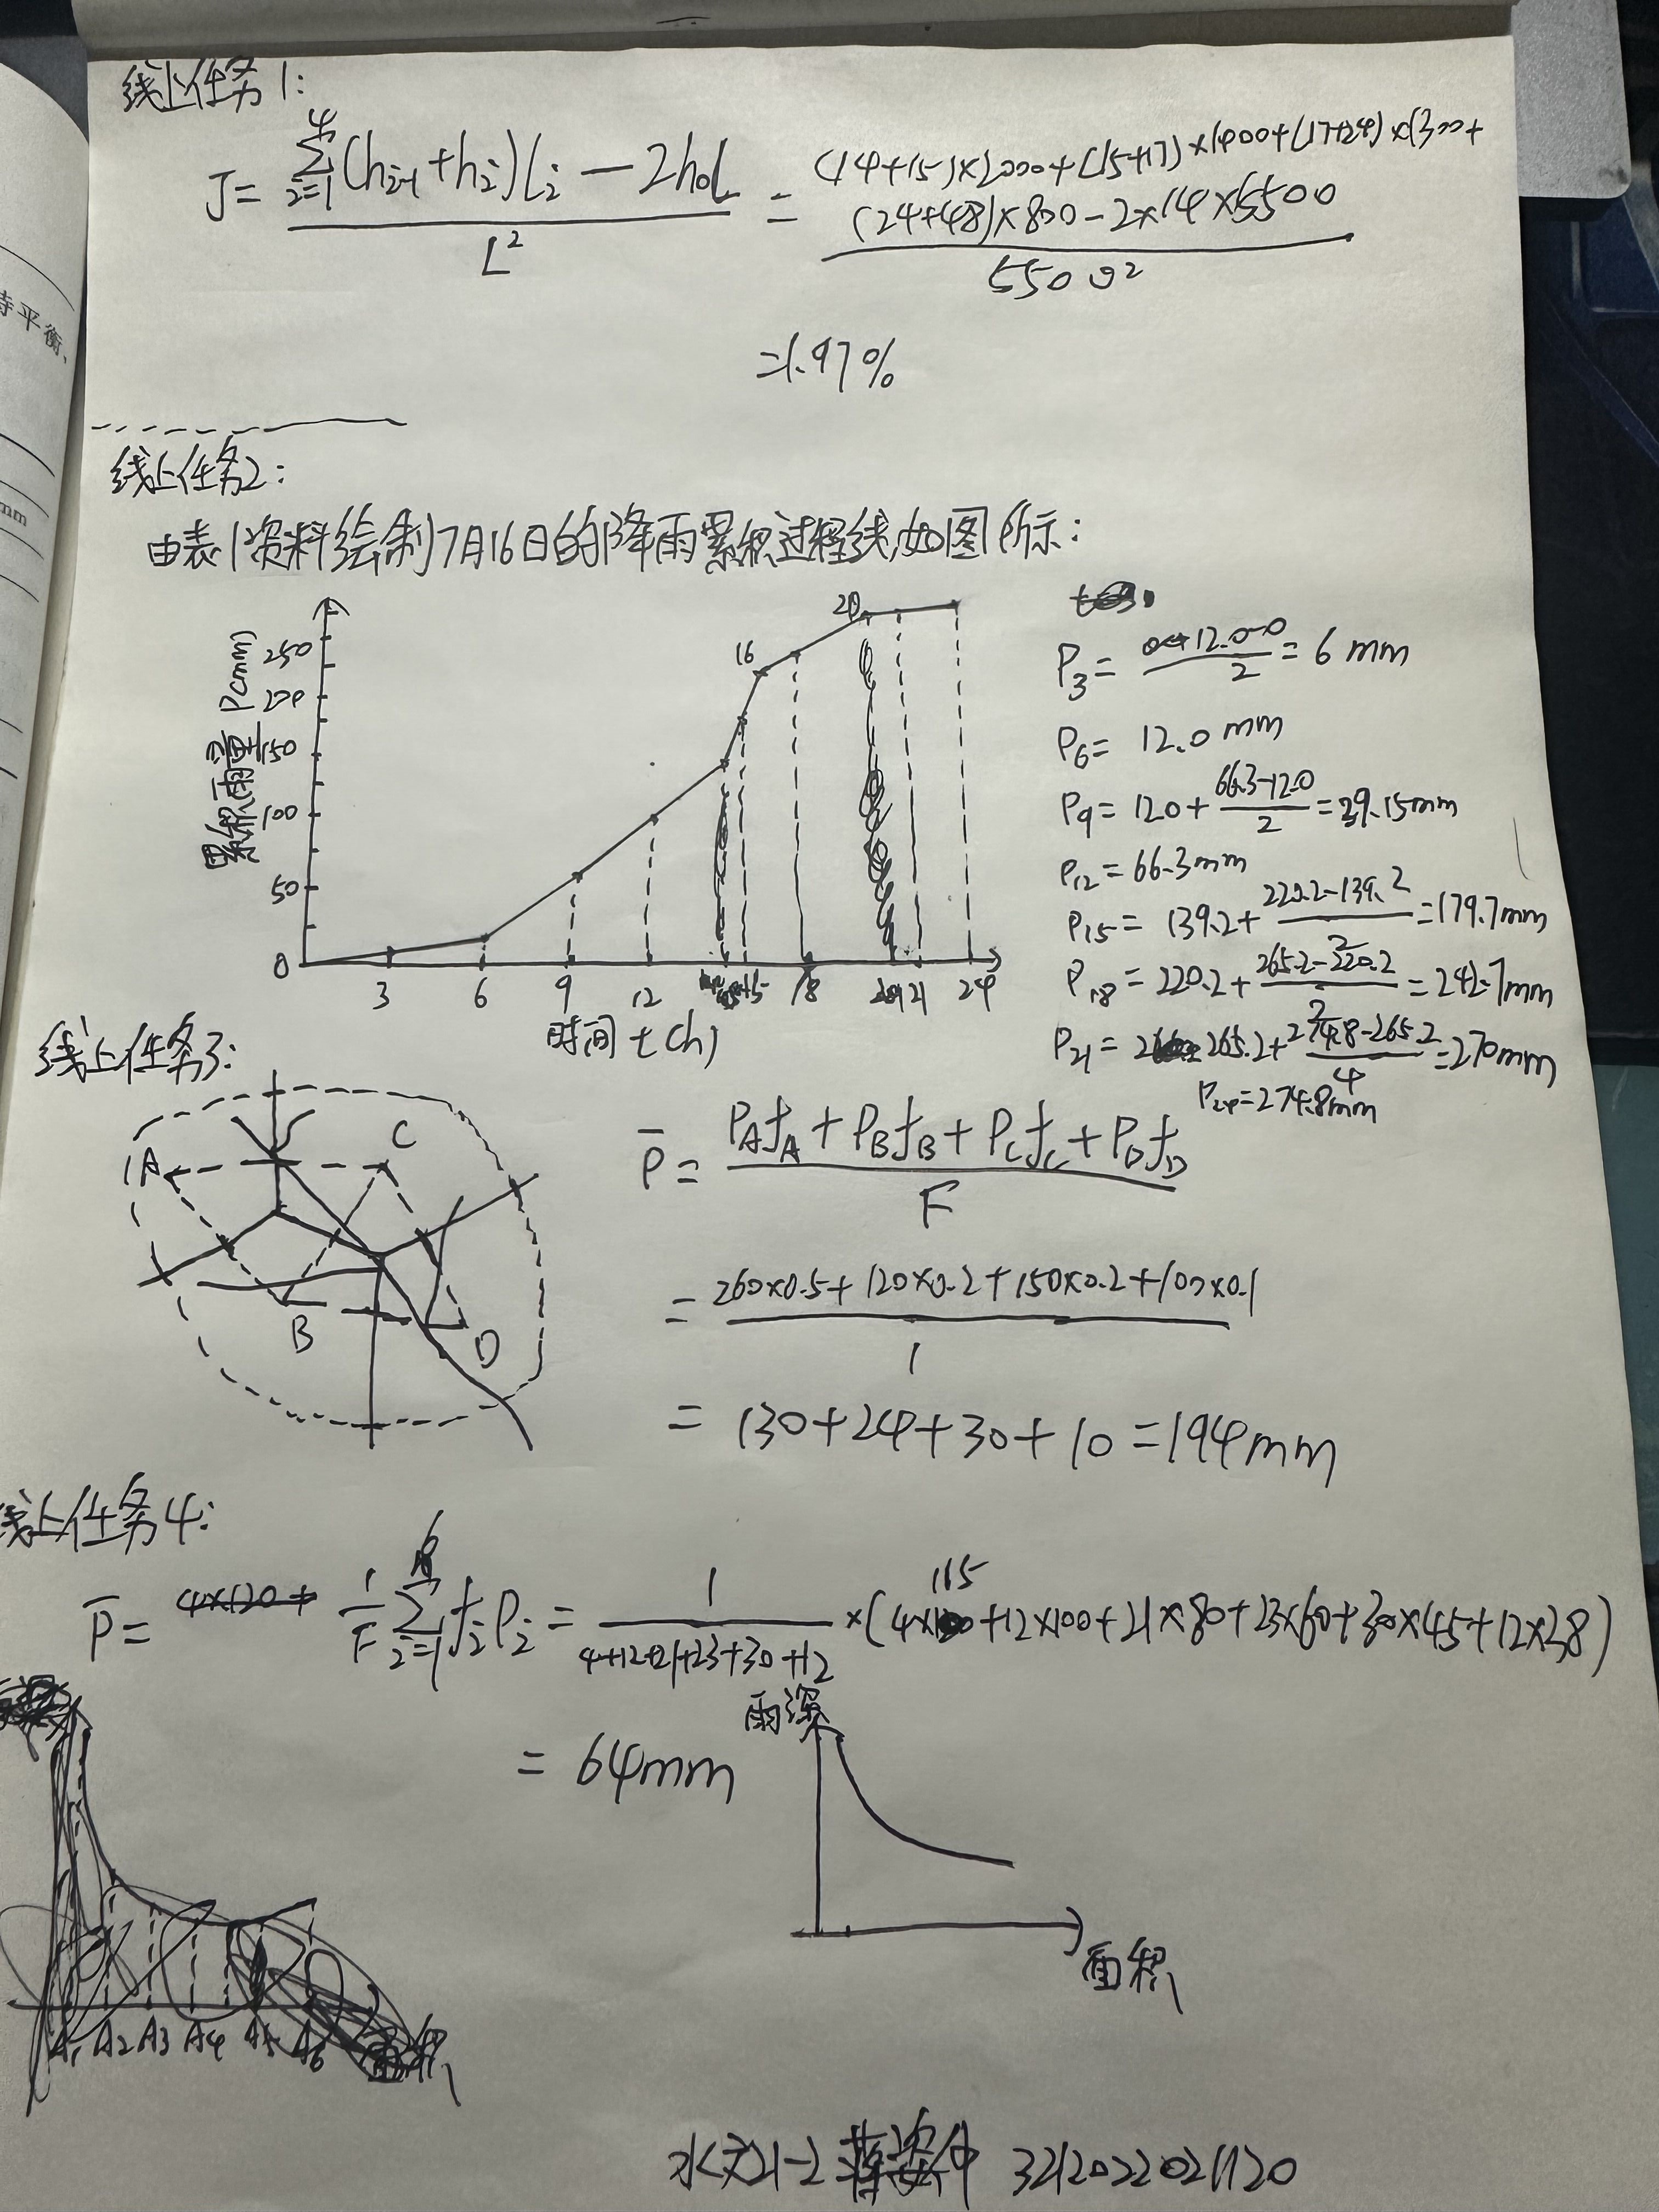 线上任务1:
J= (∑(i=1→4)(hi-1+hi)li-2h0L)/L² = ((14+15)×2000+(15+17)×1400+(17+24)×1300+(24+48)×800-2×14×5500)/5500²
=1.97%
线上任务2:
由表1资料绘制7月16日的降雨累积过程线,如图所示:
累积雨量 P(mm)
250
200
150
100
50
0
16
20
3 6 9 12 15 18 21 24
时间 t(h)
P3= (0+12.0-0)/2 = 6mm
P6= 12.0mm
P9= 12.0+(66.3-12.0)/2=39.15mm
P12=66.3mm
P15= 139.2+(220.2-139.2)/2=179.7mm
P18=220.2+(265.2-220.2)/2=242.7mm
P21=265.2+(274.8-265.2)/4=270mm
P24=274.8mm
线上任务3:
A
C
B
D
P̄= (PAfA+PBfB+PCfC+PDfD)/F
= (260×0.5+120×0.2+150×0.2+100×0.1)/1
= 130+24+30+10=194mm
线上任务4:
P̄= 4×120+ 1/F ∑(i=1→6)fiPi = 1/(4+12+21+23+30+12) ×(4×115+12×100+21×80+23×60+30×45+12×38)
= 64mm
雨深
面积
A1 A2 A3 A4 A5 A6 面积
水文21-2 3212022021120